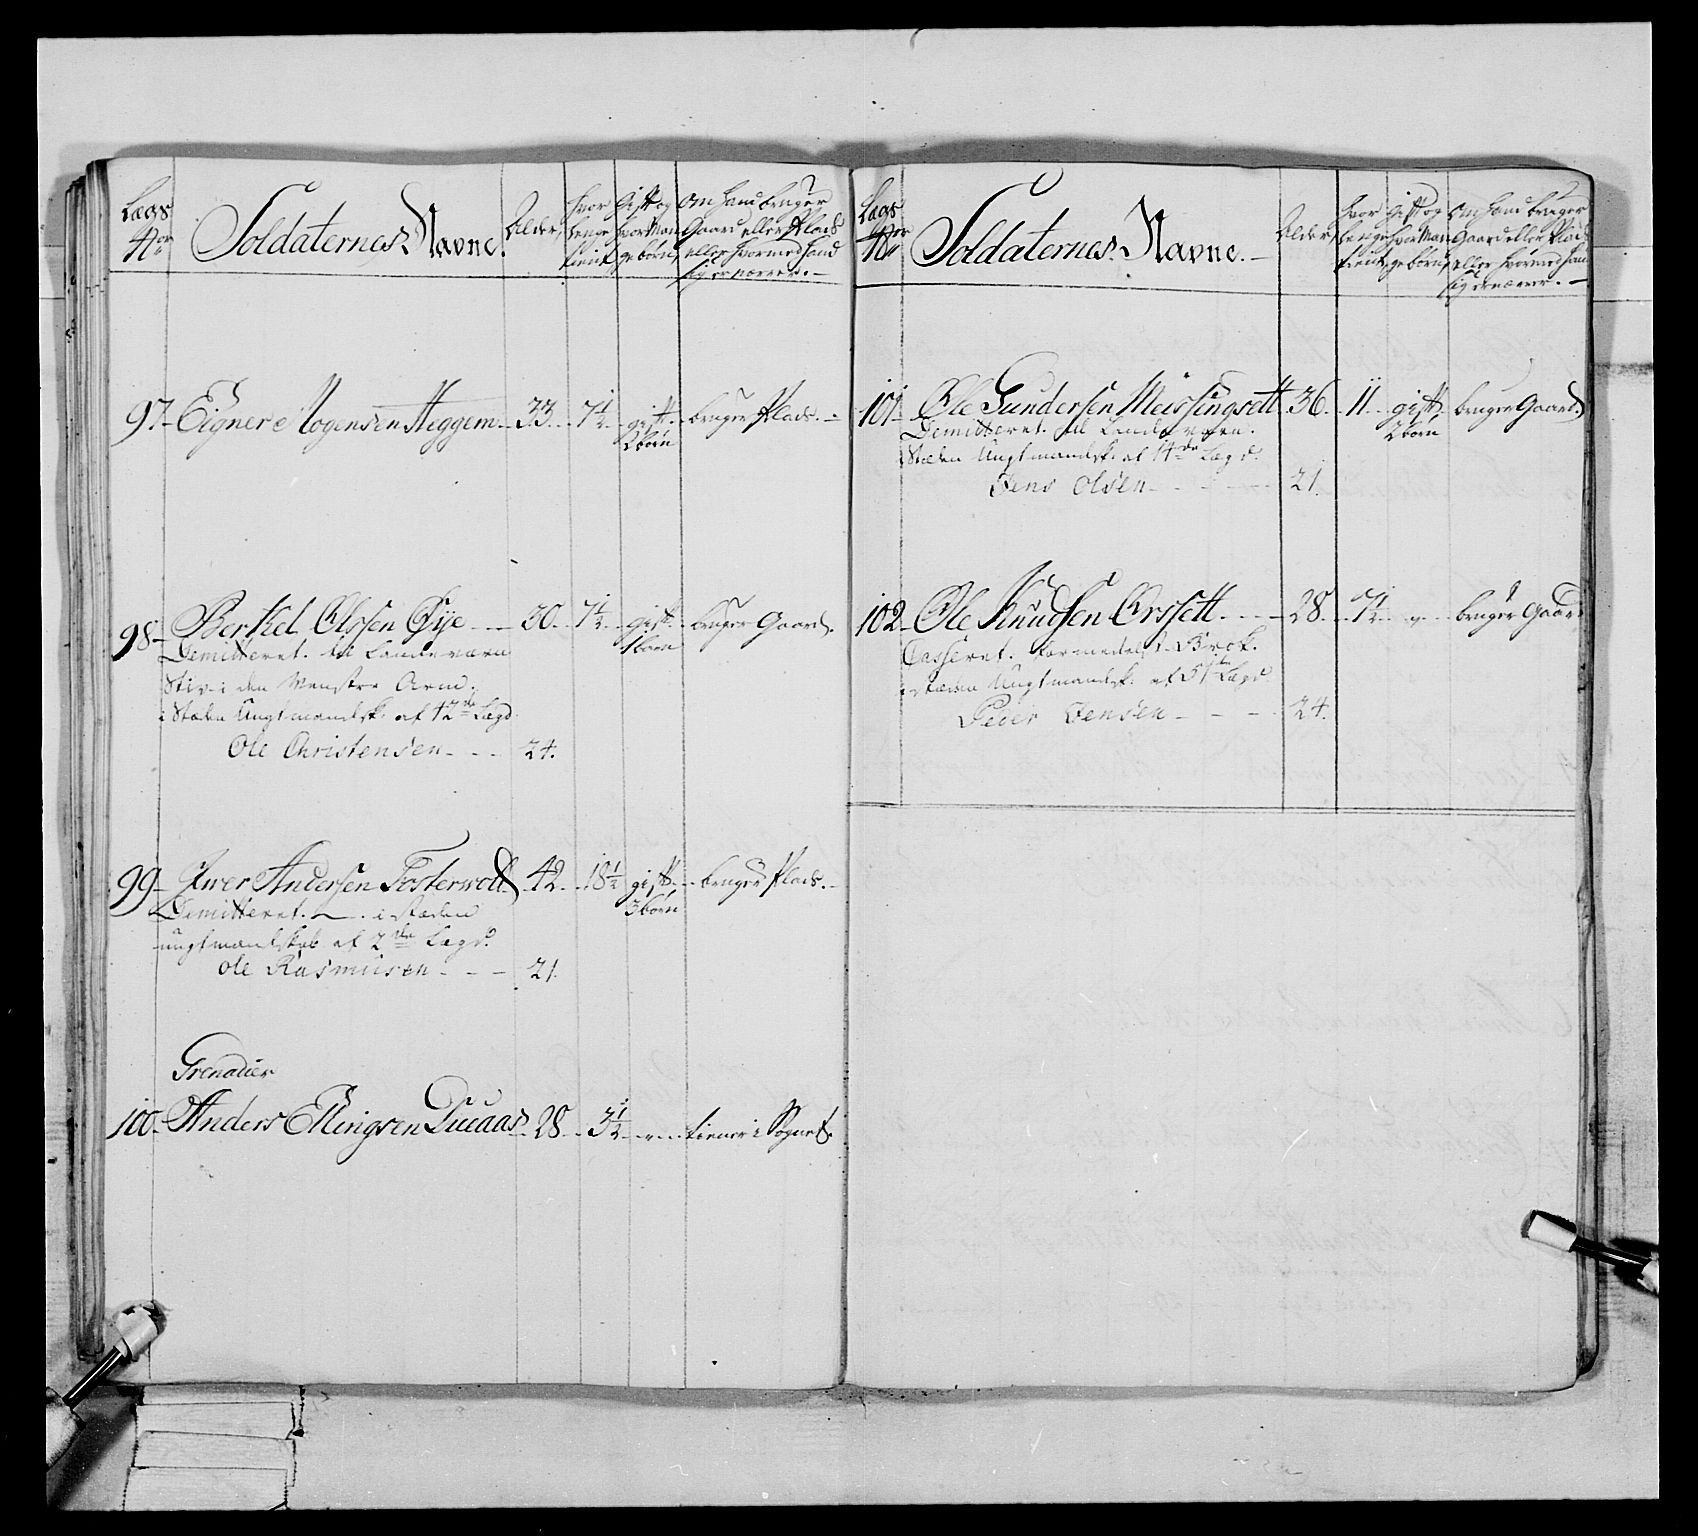 Lægs
Nor
Soldaternes Navne.
Alder,
hvor
længe
tient,
Gift og
hvor Man
ge børn,
Om hand bruger
Gaard eller Plads
eller hvormed hand
sig ernærer.
97. Eigner Mogensen Heggem. 33. 7½. gift. bruger Plads.
2 børn
98. Berthel Olssen Øye 30. 7½. gift. bruger Gaard.
Demitteret. til Landeværn 1 børn
Stiv i den Venstre Arm.
i Stæden Ungtmandsk. af 42de Lægd.
Ole Christensen 24.
99. Iwer Andersen Fosterwold 42. 18½ gift. bruger Plads.
Demitteret. i stæden 3 børn
ungtmandskab af 2de Lægd.
Ole Rasmusen 21.
Grenadier
100. Anders Ellingsen 28. 3½ tiener i Sognet.
Lægs
Nor
Soldaternes Navne.
Alder,
hvor
længe
tient,
Gift og
hvor Man
ge børn,
Om hand bruger
Gaard eller Plads
eller hvormed hand
sig ernærer.
101. Ole Gundersen Meissingsett 36. 11. gift. bruger Gaard.
Demitteret. til Landeværn. 2 børn
i Stæden Ungtmandsk. af 14de Lægd.
Jens Olsen 21.
102. Ole Knudsen Orssett. 28. 7½. bruger Gaard
Casseret. formedelst Brok.
i stæden Ungtmandsk. af Lægd
Peder Jensen 24.